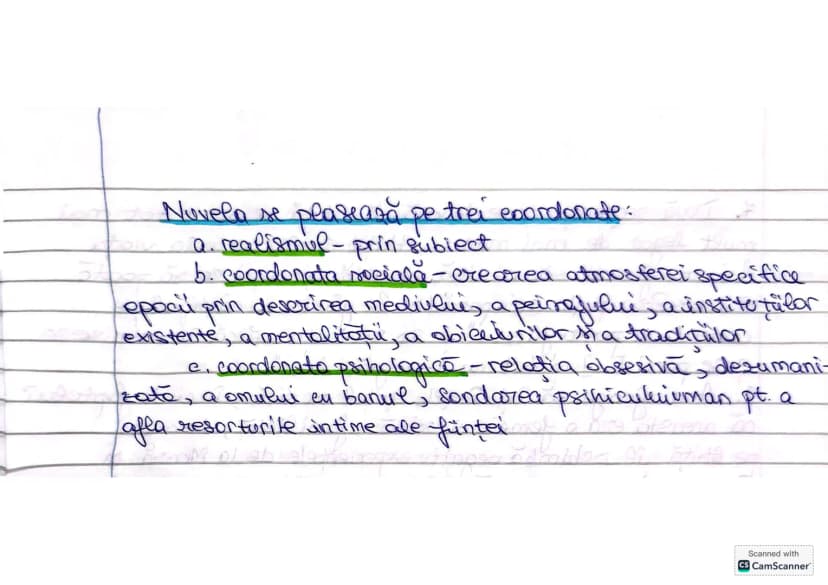 Nuvela se plasează pe trei coordonate:
a. realismul - prin subiect
b. coordonata socială - crearea atmosferei specifice
epocii prin descrierea mediului, a peisajului, a instituțiilor
existente, a mentalității, a obiceiurilor și a tradițiilor
c. coordonata psihologică - relația obsesivă, dezumani-
zată, a omului cu banul, sondarea psihicului uman pt. a
afla resorturile intime ale ființei
Scanned with
CS CamScanner